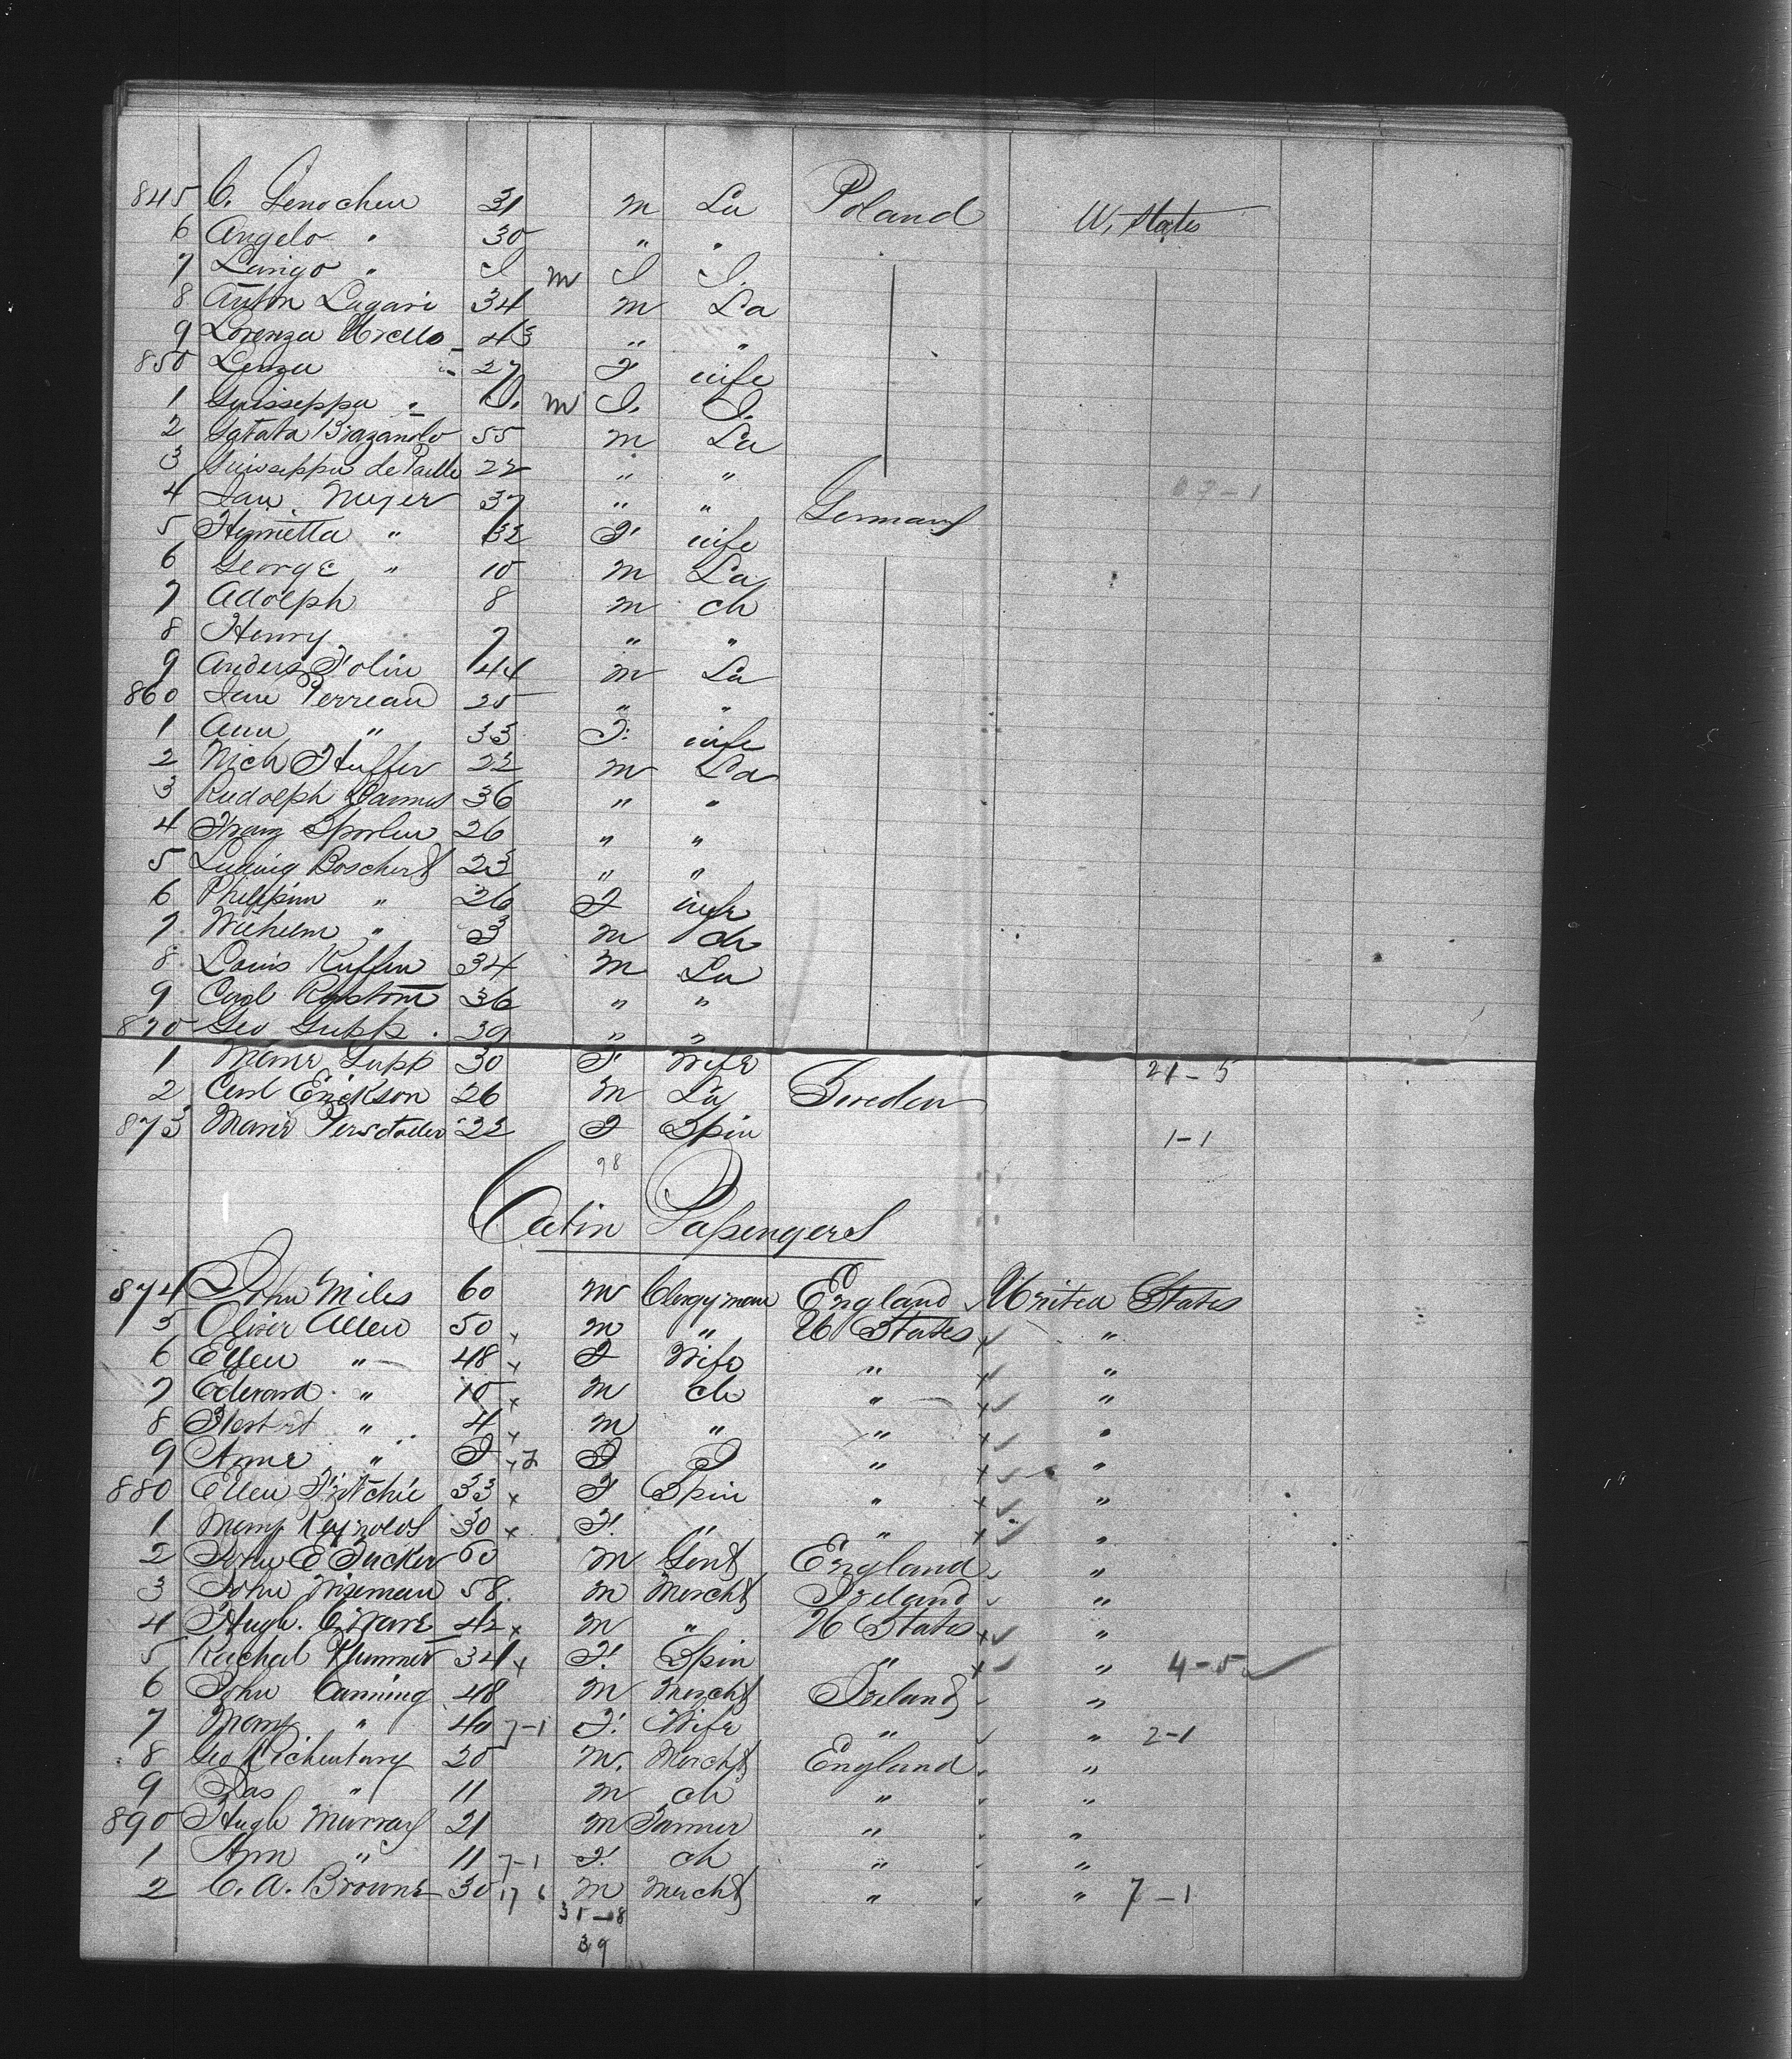 845 C. Genochen 31 m La Poland U. States
6 Angelo " 30 " "
7 Larigo " I m I I.
8 Anton Lagari 34 m La
9 Lorenza Urello 43 " "
850 Lenza " 27 F wife
1 Guisseppa " I. m I. I.
2 Gatata Brazanolo 55 m La
3 Guisseppa de Paille 22 " "
4 Jan Meyer 37 " " Germany
5 Henrietta " 32 F wife
6 George " 10 m La
7 Adolph 8 m ch
8 Henry 7 " "
9 Anders Folin 44 m La
860 Jean Perreau 25 " "
1 Ann " 33 F. wife
2 Nich Huffer 22 m La
3 Rudolph 36 " "
4 Franz Sporlen 26 " "
5 Ludwig Boschert 23 " "
6 Philippin " 26 F wife
7 Wilhelm " 3 m ch
8 Louis Kuffen 34 m La
9 Carl 36 " "
870 Geo Gupp. 39 " "
1 Marie Gupp 30 F wife 21-5
2 Carl Erickson 26 m La Sweden
873 Marie 22 F Spin 1-1
98
Cabin Passengers
874 John Miles 60 m Clergyman England United States
5 Oliver Allen 50 x m " U States "
6 Ellen " 48 x F Wife " "
7 Edward " 10 x m ch " "
8 Herbert " 4 x m " " "
9 Anne " I x 2 F I " "
880 Ellen Fritchie 33 x F Spin " "
1 Mary Reynolds 30 x F. " " "
2 John E Tucker 60 m Gent England "
3 John Wiseman 58. m Mercht Ireland "
4 Hugh 42 x m " U States "
5 Rachel Plummer 34 x F. Spin " " 4-5
6 John Canning 48 m Mercht Ireland "
7 Mary " 40 7-1 F. Wife " " 2-1
8 Geo 20 m. Mercht England "
9 Jas " 11 m ch " "
890 Hugh Murray 21 m Farmer " "
1 Ann " 11 7-1 F. ch " "
2 C. A. Browne 30 17 6 m Mercht " " 7-1
31-8
39